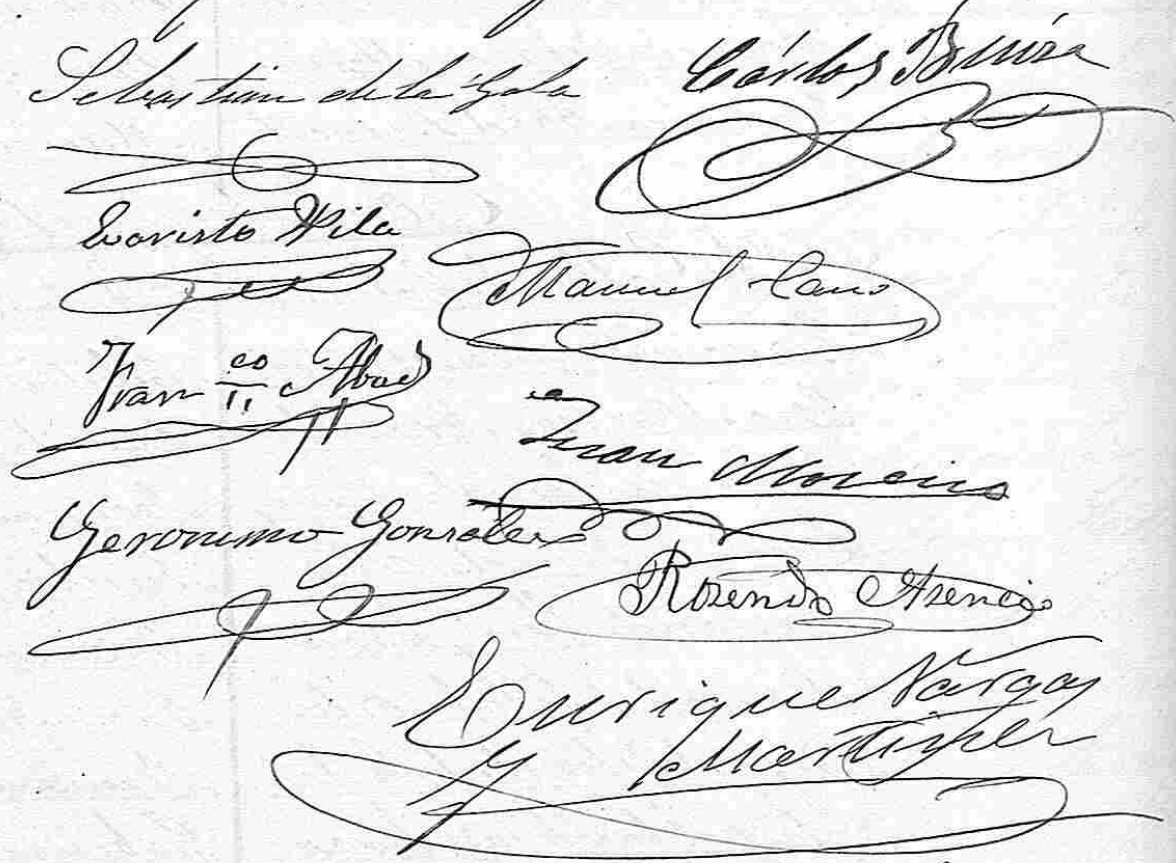 Sebastian de la Gala
Cárlos
Evaristo Vila
Manuel Cano
Fran co Abad
Juan Moreno
Geronimo Gonzalez
Rosendo Asencio
Enrique Vargas
y Martinez